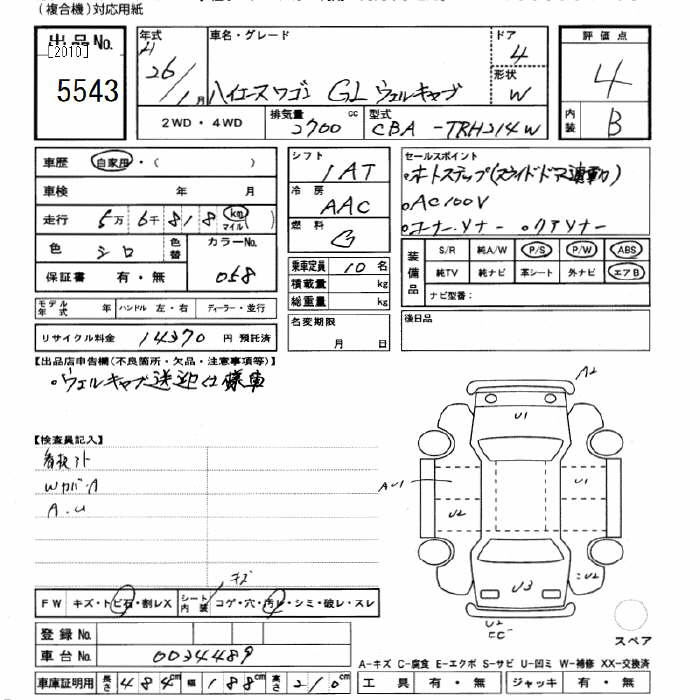 (複合機)対応用紙
出品No.
[2010]
5543
年式
H
26/1月
車名・グレード
ハイエースワゴン GL ウェルキャブ
ドア
4
形状
W
2WD・4WD
排気量
2700 cc
型式
CBA-TRH214W
評価点
4
内装
B
車歴 自家用・( )
車検 年 月
走行 5万 6千 818 (km マイル)
色 シロ 色替
カラーNo.
058
保証書 有・無
モデル年式 年 ハンドル 左・右 ディーラー・並行
リサイクル料金 14370 円 預託済
シフト
IAT
冷房
AAC
燃料
G
乗車定員 10 名
積載量 kg
総重量 kg
名変期限
月 日
セールスポイント
・オートステップ(スライドドア連動)
・AC100V
・コーナーソナー ・クリアソナー
装備品
S/R 純A/W P/S P/W ABS
純TV 純ナビ 革シート 外ナビ エアB
ナビ型番:
後日品
【出品店申告欄(不良箇所・欠品・注意事項等)】
・ウェルキャブ送迎仕様車
【検査員記入】
看板アト
WカバーA
A.U
キズ
FW キズ・トビ石・割レX シート内装 コゲ・穴・汚レ・シミ・破レ・スレ
登録No.
車台No. 0034489
車庫証明用 長さ 484cm 幅 188cm 高さ 210cm
A2
U1
AU1
U1
U2
U3
U2
スペア
A-キズ C-腐食 E-エクボ S-サビ U-凹ミ W-補修 XX-交換済
工具 有・無 ジャッキ 有・無